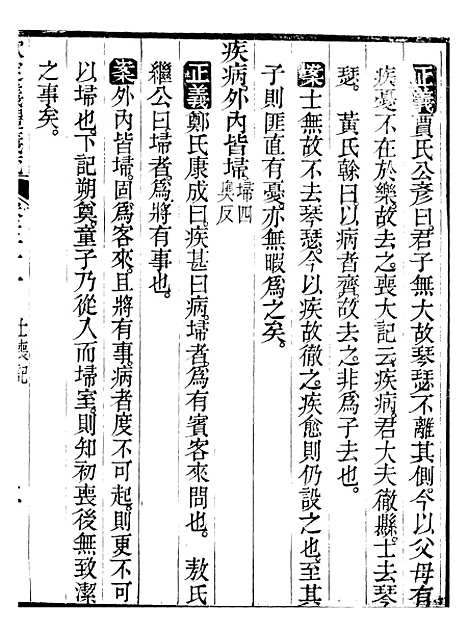 正義賈氏公彥曰君子無大故琴瑟不離其側今以父母有
疾憂不在於樂故去之喪大記云疾病君大夫徹縣士去琴
瑟。黃氏榦曰以病者齊故去之非爲子去也。
案士無故不去琴瑟今以疾故徹之疾愈則仍設之也至其
子則匪直有憂亦無暇爲之矣。
疾病外內皆埽埽四奧反
正義鄭氏康成曰疾甚曰病埽者爲有賓客來問也。敖氏
繼公曰埽者爲將有事也。
案外內皆埽固爲客來且將有事病者度不可起則更不可
以埽也下記朔奠童子乃從入而埽室則知初喪後無致潔
之事矣。
士喪記